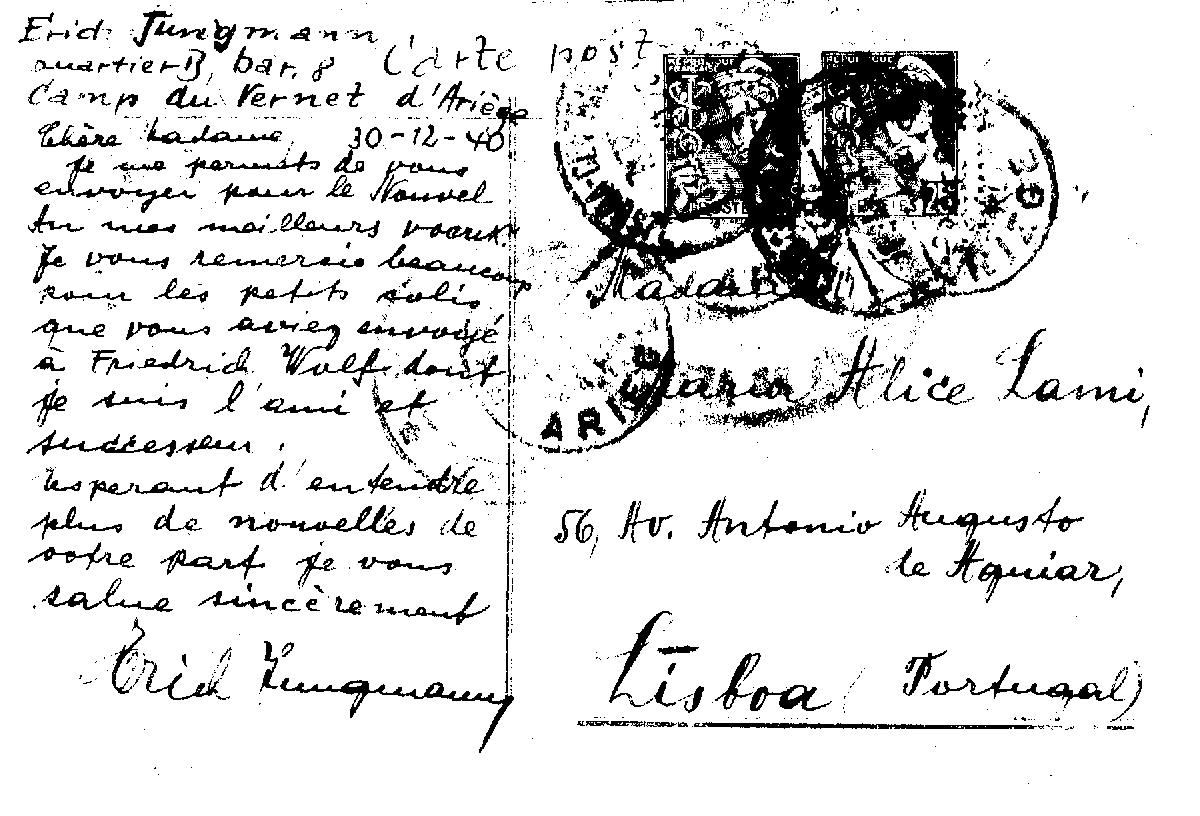 Erich Jungmann
quartier B, bar. 8
Camp du Vernet d'Ariège
Carte postale
Chère Madame, 30-12-40
Je me permets de vous
envoyer pour le Nouvel
An mes meilleurs voeux.
Je vous remercie beaucoup
pour les petits colis
que vous aviez envoyé
à Friedrich Wolf dont
je suis l'ami et
successeur.
Esperant d'entendre
plus de nouvelles de
votre part je vous
salue sincèrement
Erich Jungmann
Madame
Maria Alice Lami,
56, Av. Antonio Augusto
de Aguiar,
Lisboa (Portugal)
ARIEGE